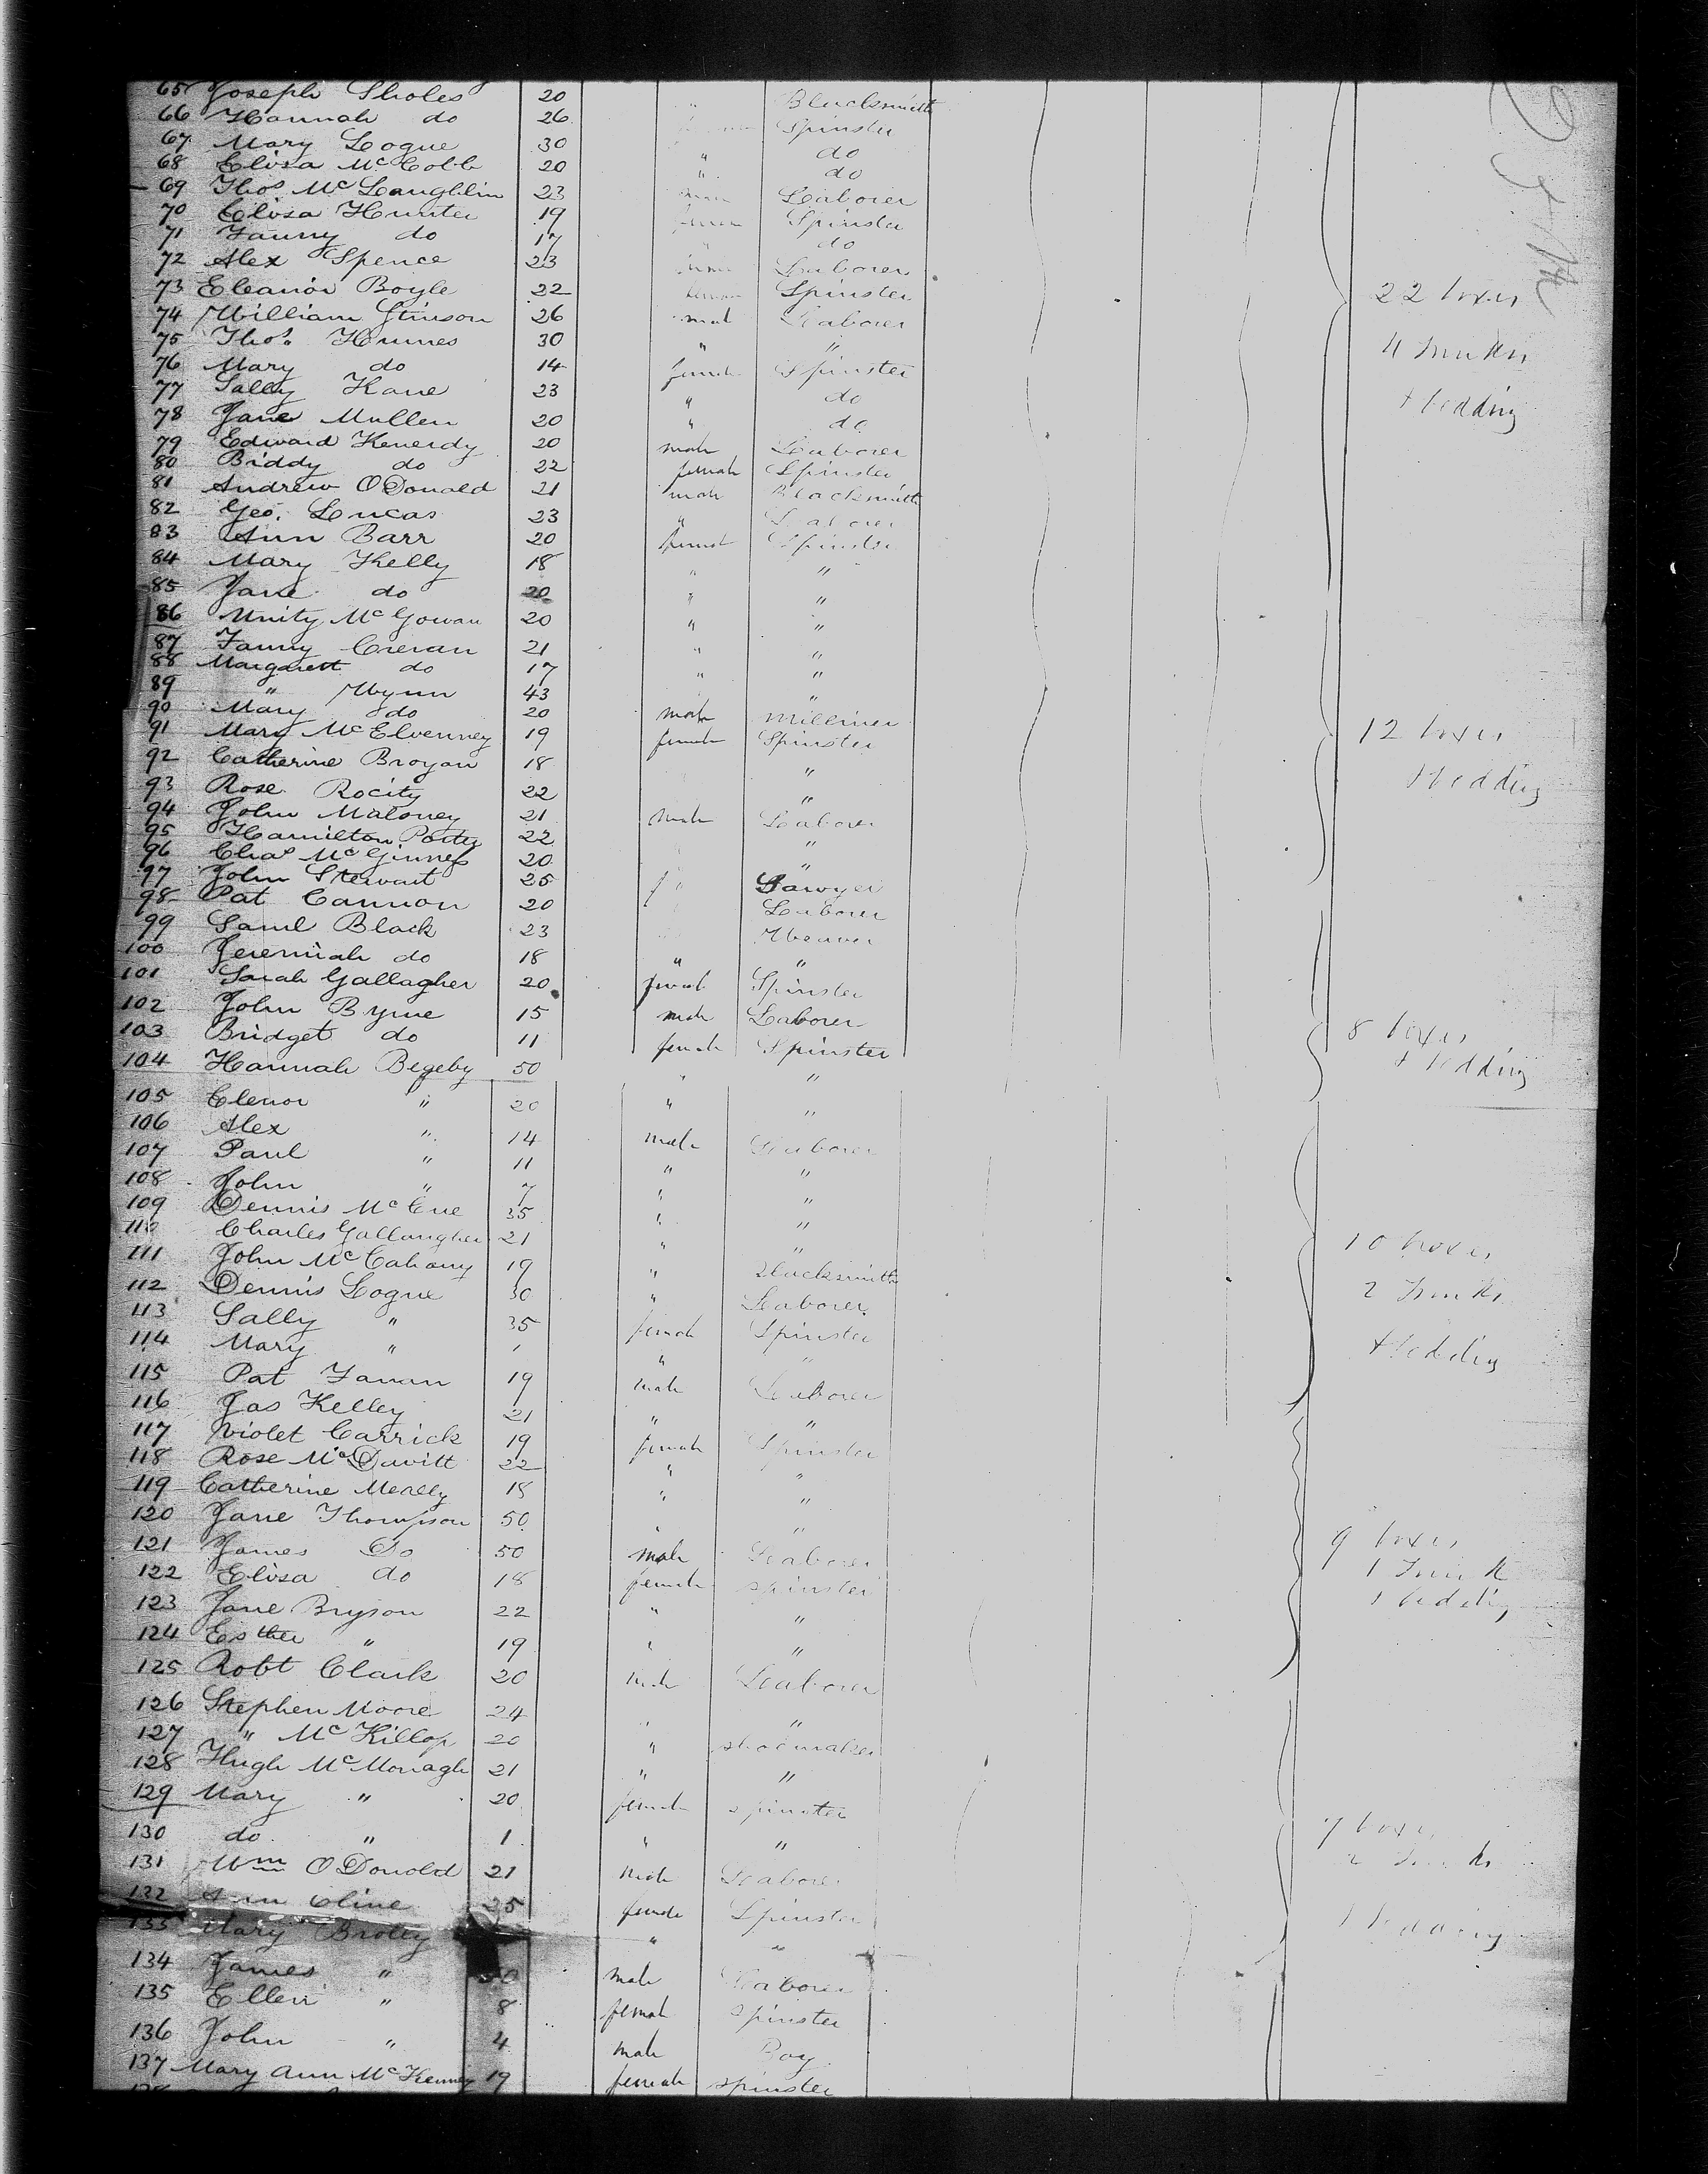 65 Joseph Sholes 20 " Blacksmith
66 Hannah do 26 Spinster
67 Mary Logue 30 " do
68 Eliza Mc Cobb 20 " do
69 Thos Mc Laughlin 23 Laborer
70 Eliza Hunter 19 Spinster
71 Fanny do 17 " do
72 Alex Spence 23 Laborer
73 Eleanor Boyle 22 Spinster 22 boxes
74 William Stinson 26 mal Laborer
75 Thos. Humes 30 " " 4 Trunks
76 Mary do 14 female Spinster
77 Sally Kane 23 " do + bedding
78 Jane Mullen 20 " do
79 Edward Kenerdy 20 male Laborer
80 Biddy do 22 female Spinster
81 Andrew O Donald 21 male Blacksmith
82 Geo. Lucas 23 " Laborer
83 Ann Barr 20 female Spinster
84 Mary Kelly 18 " "
85 Jane do 20 " "
86 Unity Mc Gowan 20 " "
87 Fanny Creran 21 " "
88 Margarett do 17 " "
89 " Wynn 43 "
90 Mary do 20 male milliner
91 Mary Mc Elvenney 19 female Spinster 12 boxes
92 Catherine Brogan 18 "
93 Rose Rocity 22 " + bedding
94 John Maloney 21 male Laborer
95 Hamilton Porter 22 "
96 Chas Mc Ginness 20 "
97 John Stewart 25 " Sawyer
98 Pat Cannon 20 Laborer
99 Saml Black 23 Weaver
100 Jeremiah do 18 " "
101 Sarah Gallagher 20 female Spinster
102 John Byrne 15 male Laborer
103 Bridget do 11 female Spinster 8 boxes
104 Hannah Begeby 50 " " + bedding
105 Elenor " 20 " "
106 Alex " 14 male Laborer
107 Paul " 11 " "
108 John " 7 " "
109 Dennis Mc Cue 35 " "
110 Charles Gallaugher 21 " " 10 boxes
111 John Mc Cahany 19 " Blacksmith
112 Dennis Logue 30 " Laborer 2 Trunks
113 Sally " 35 female Spinster
114 Mary " 1 " " + bedding
115 Pat Fanan 19 male Laborer
116 Jas Kelley 21 " "
117 Violet Carrick 19 female Spinster
118 Rose Mc Davitt 22 " "
119 Catherine Menlly 18 " "
120 Jane Thompson 50 " "
121 James Do 50 male Laborer 9 boxes
122 Eliza do 18 female spinster 1 Trunk
123 Jane Bryson 22 " " + bedding
124 Esther " 19 " "
125 Robt Clark 20 male Laborer
126 Stephen Moore 24 " "
127 " Mc Killop 20 " shoemaker
128 Hugh Mc Monagh 21 " "
129 Mary " 20 female spinster
130 do " 1 " " 7 boxes
131 Wm O Donold 21 male Laborer 2 Trunks
132 Ann Cline 25 female Spinster
133 Mary Broley " " + bedding
134 James " male Laborer
135 Ellen " 8 female spinster
136 John " 4 male Boy
137 Mary Ann Mc Kenney 19 female spinster